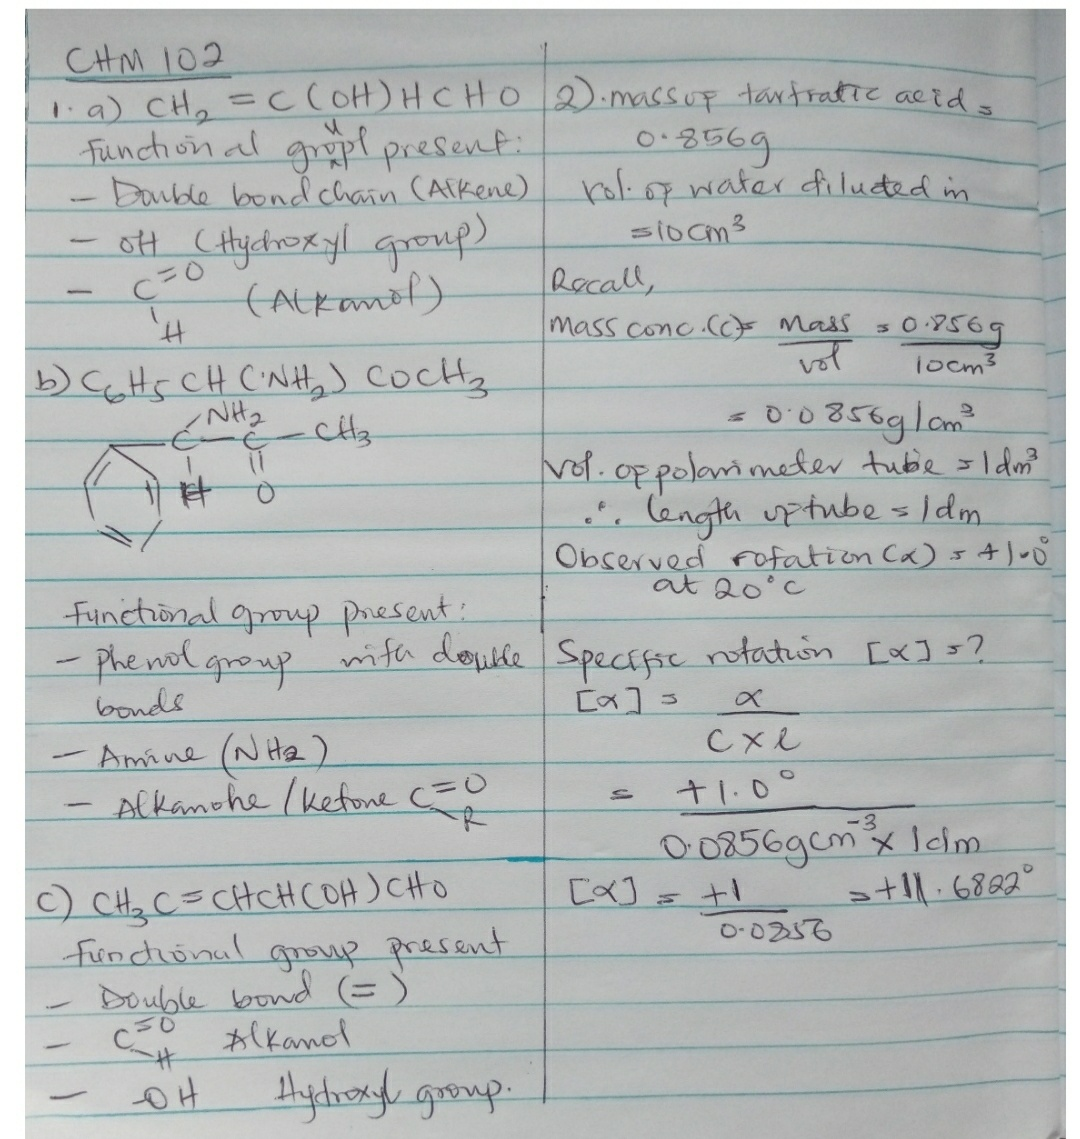 CHM 102
1. a) CH2 = C(OH)HCHO
Functional group present:
- Double bond chain (Alkene)
- OH (Hydroxyl group)
- C=O (Alkanol)
H
b) C6H5 CH (NH2) COCH3
NH2
C - C - CH3
H O
Functional group present:
- phenol group with double
bonds
- Amine (NH2)
- Alkanone / Ketone C=O
R
c) CH3 C=CHCH(OH)CHO
Functional group present
- Double bond (=)
- C=O Alkanol
H
- -OH Hydroxyl group.
2). mass of tartratic acid =
0.856g
vol. of water diluted in
=10cm3
Recall,
mass conc. (c) = Mass/vol = 0.856g/10cm3
= 0.0856g/cm3
Vol. of polarimeter tube = 1dm3
∴ length of tube = 1dm
Observed rotation (α) = +1.0°
at 20°C
Specific rotation [α] = ?
[α] = α
C x l
= +1.0°
0.0856gcm-3 x 1dm
[α] = +1/0.0856 = +11.6822°